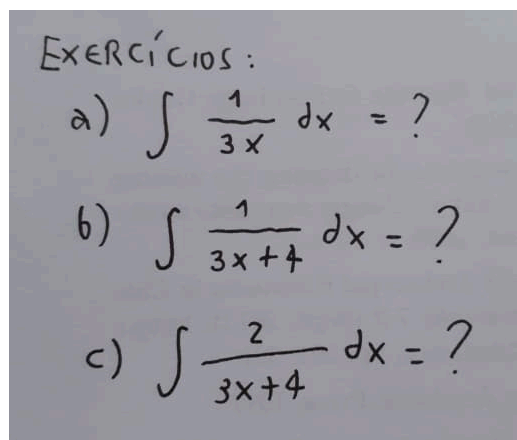 EXERCÍCIOS:
a) ∫ 1/3x dx = ?
b) ∫ 1/3x+4 dx = ?
c) ∫ 2/3x+4 dx = ?